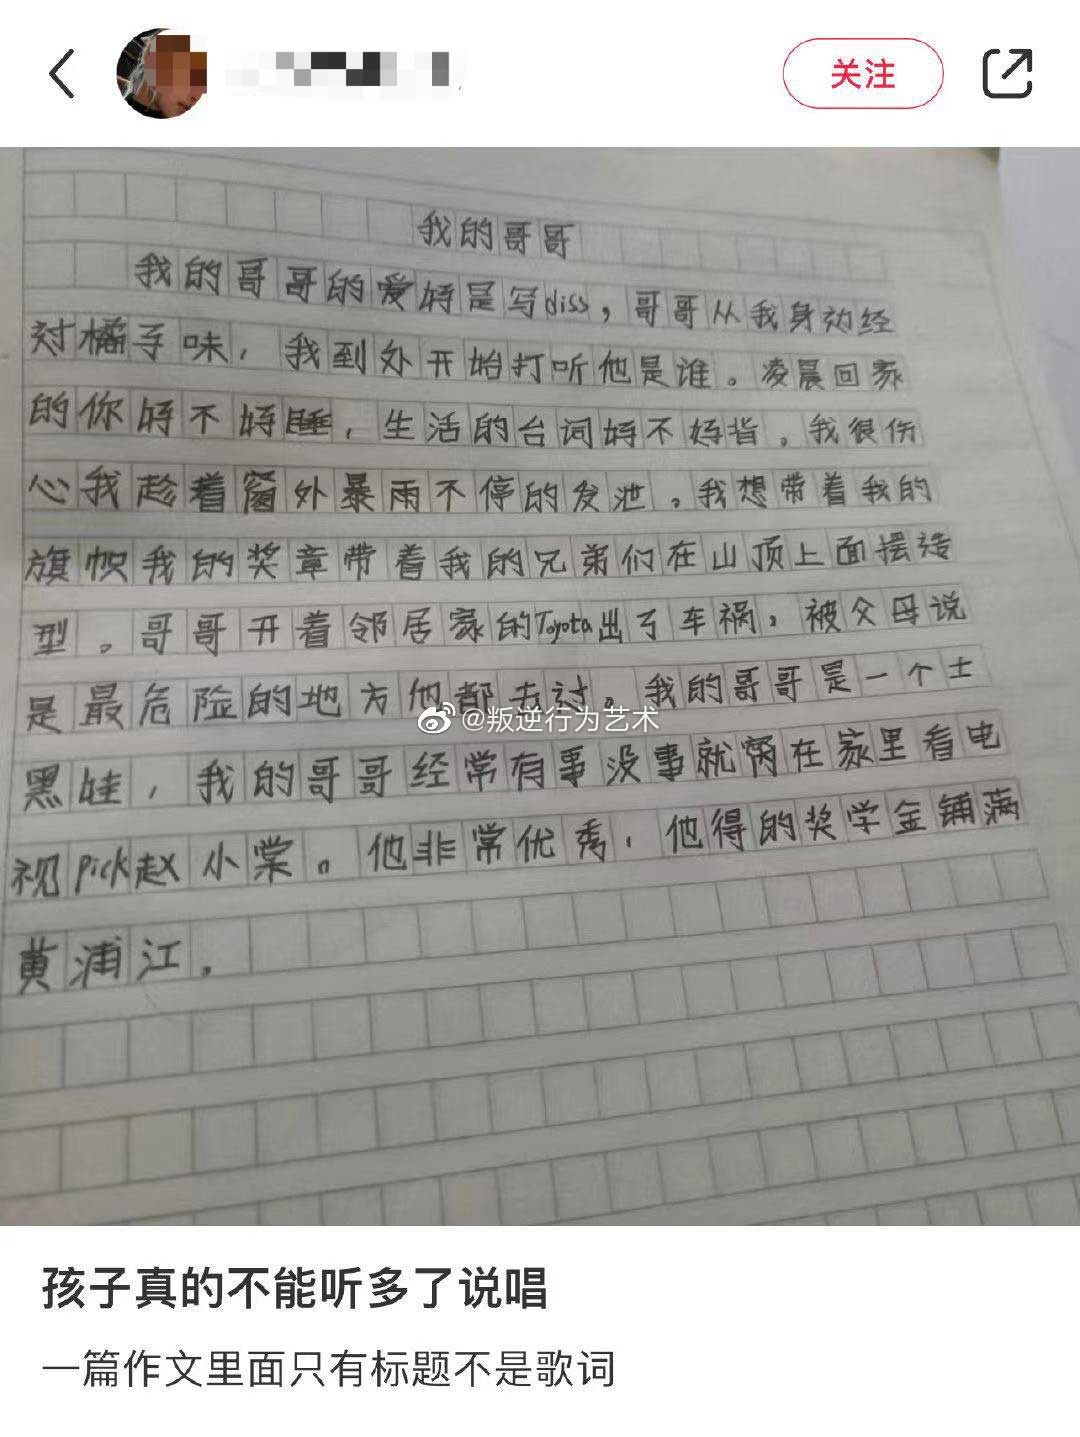 关注
我的哥哥
我的哥哥的爱好是写diss，哥哥从我身边经
过橘子味，我到处开始打听他是谁。凌晨回家
的你好不好睡，生活的台词好不好背。我很伤
心我趁着窗外暴雨不停的发泄。我想带着我的
旗帜我的奖章带着我的兄弟们在山顶上面摆造
型。哥哥开着邻居家的Toyota出了车祸，被父母说
是最危险的地方他都去过。我的哥哥是一个土
黑娃，我的哥哥经常有事没事就窝在家里看电
视pick赵小棠。他非常优秀，他得的奖学金铺满
黄浦江。
@叛逆行为艺术
孩子真的不能听多了说唱
一篇作文里面只有标题不是歌词